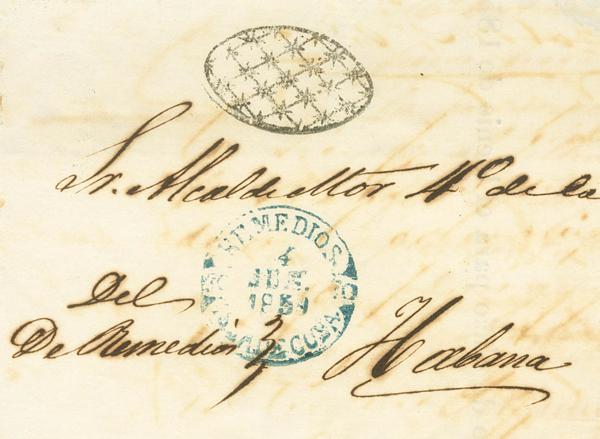 Sr. Alcalde Mor 4º de la
REMEDIOS
4
JUN.
1854
DE CUBA
Del
De Remedios
Habana